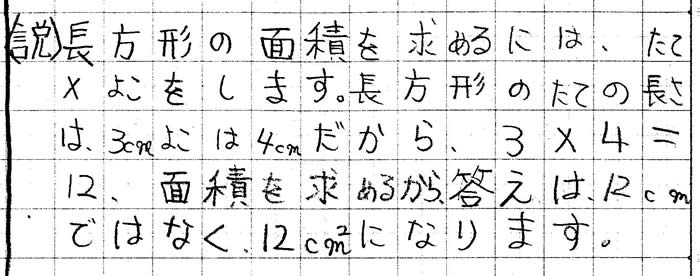 (説)長方形の面積を求めるには、たて
×よこをします。長方形のたての長さ
は、3cmよこは4cmだから、3×4=
12、面積を求めるから、答えは、12cm
ではなく、12cm²になります。